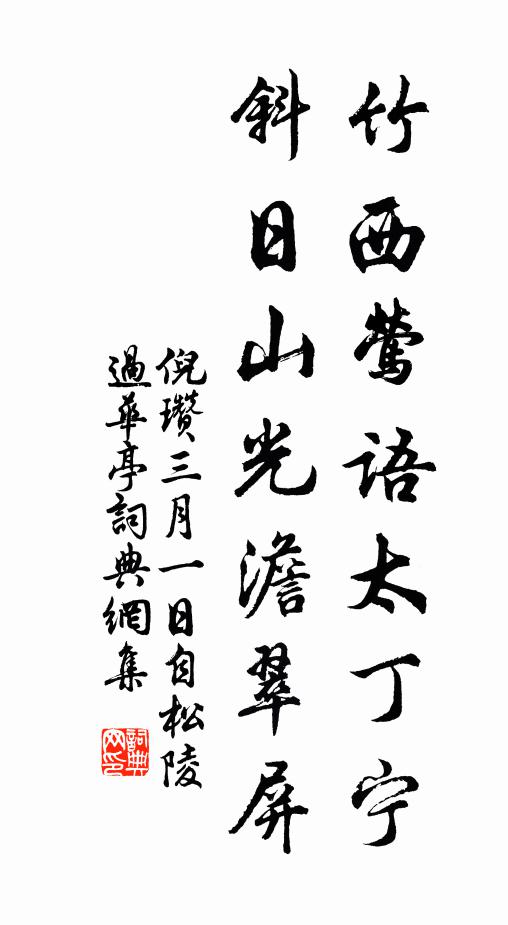 竹西鶯語太丁宁
斜日山光澹翠屏
倪瓚三月一日自松陵
過華亭詞典網集
詞典
网印